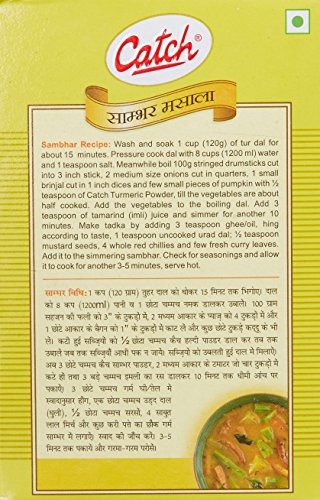 Catch®
साम्भर मसाला
Sambhar Recipe: Wash and soak 1 cup (120g) of tur dal for
about 15 minutes. Pressure cook dal with 8 cups (1200 ml) water
and 1 teaspoon salt. Meanwhile boil 100g stringed drumsticks cut
into 3 inch stick, 2 medium size onions cut in quarters, 1 small
brinjal cut in 1 inch dices and few small pieces of pumpkin with ½
teaspoon of Catch Turmeric Powder, till the vegetables are about
half cooked. Add the vegetables to the boiling dal. Add 3
teaspoon of tamarind (imli) juice and simmer for another 10
minutes. Make tadka by adding 3 teaspoon ghee/oil, hing
according to taste, 1 teaspoon uncooked urad dal; ½ teaspoon
mustard seeds, 4 whole red chillies and few fresh curry leaves.
Add it to the simmering sambhar. Check for seasonings and allow
it to cook for another 3-5 minutes, serve hot.
साम्भर विधि: 1 कप (120 ग्राम) तुहर दाल को धोकर 15 मिनट तक भिगोएं। दाल
को 8 कप (1200ml) पानी व 1 छोटा चम्मच नमक डालकर उबाले। 100 ग्राम
सहजन की फली को 3" के टुकड़ों में, 2 मध्यम आकार के प्याज को 4 टुकड़ों में और
1 छोटे आकार के बैंगन को 1" के टुकड़ों में काट ले और कुछ छोटे टुकड़े कद्दू के भी
लें। कटी हुई सब्जियों को ½ छोटा चम्मच कैच हल्दी पाउडर डाल कर तब तक
उबाले जब तक सब्जियाँ आधी पक न जायें। सब्जियों को उबलती हुई दाल मे मिलाऐं।
अब 3 छोटे चम्मच कैच साम्भर पाउडर, 2 मध्यम आकार के टमाटर जो चार टुकड़ों में
कटे हों तथा 3 बड़े चम्मच इमली का रस डालकर 10 मिनट तक धीमी आंच पर
पकाऐं। 3 छोटे चम्मच गर्म घी/तेल में
स्वादानुसार हींग, एक छोटा चम्मच उड़द दाल
(धुली), ½ छोटा चम्मच सरसों, 4 साबुत
लाल मिर्च और कुछ करी पत्ते का छौंक गर्म
साम्भर मे लगाऐं। स्वाद को जाँच करे। 3-5
मिनट तक पकायें और गरमा-गरम परोसें।